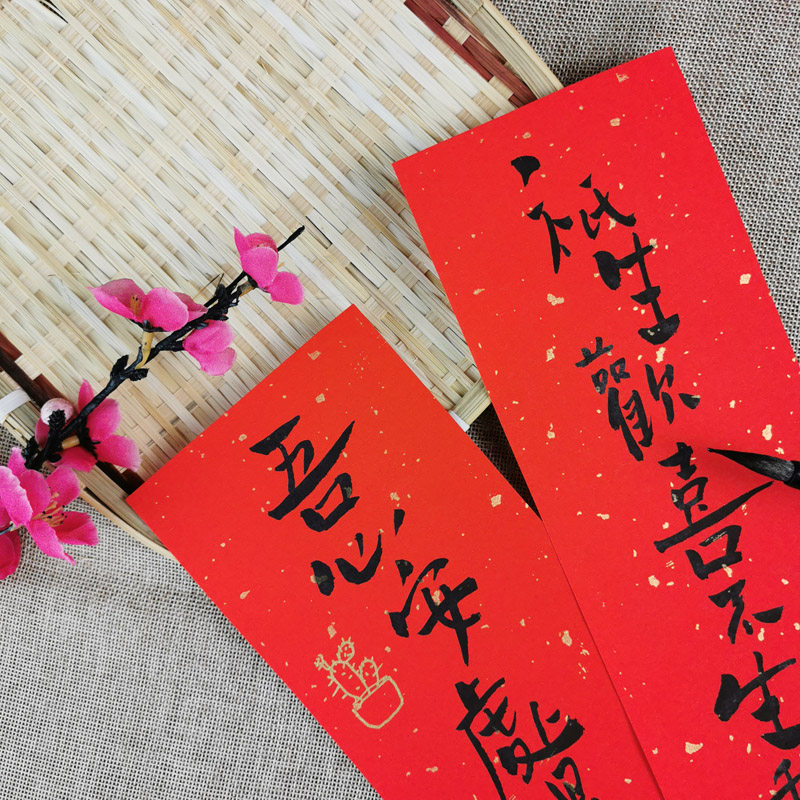 祇生歡喜不生
吾心安處